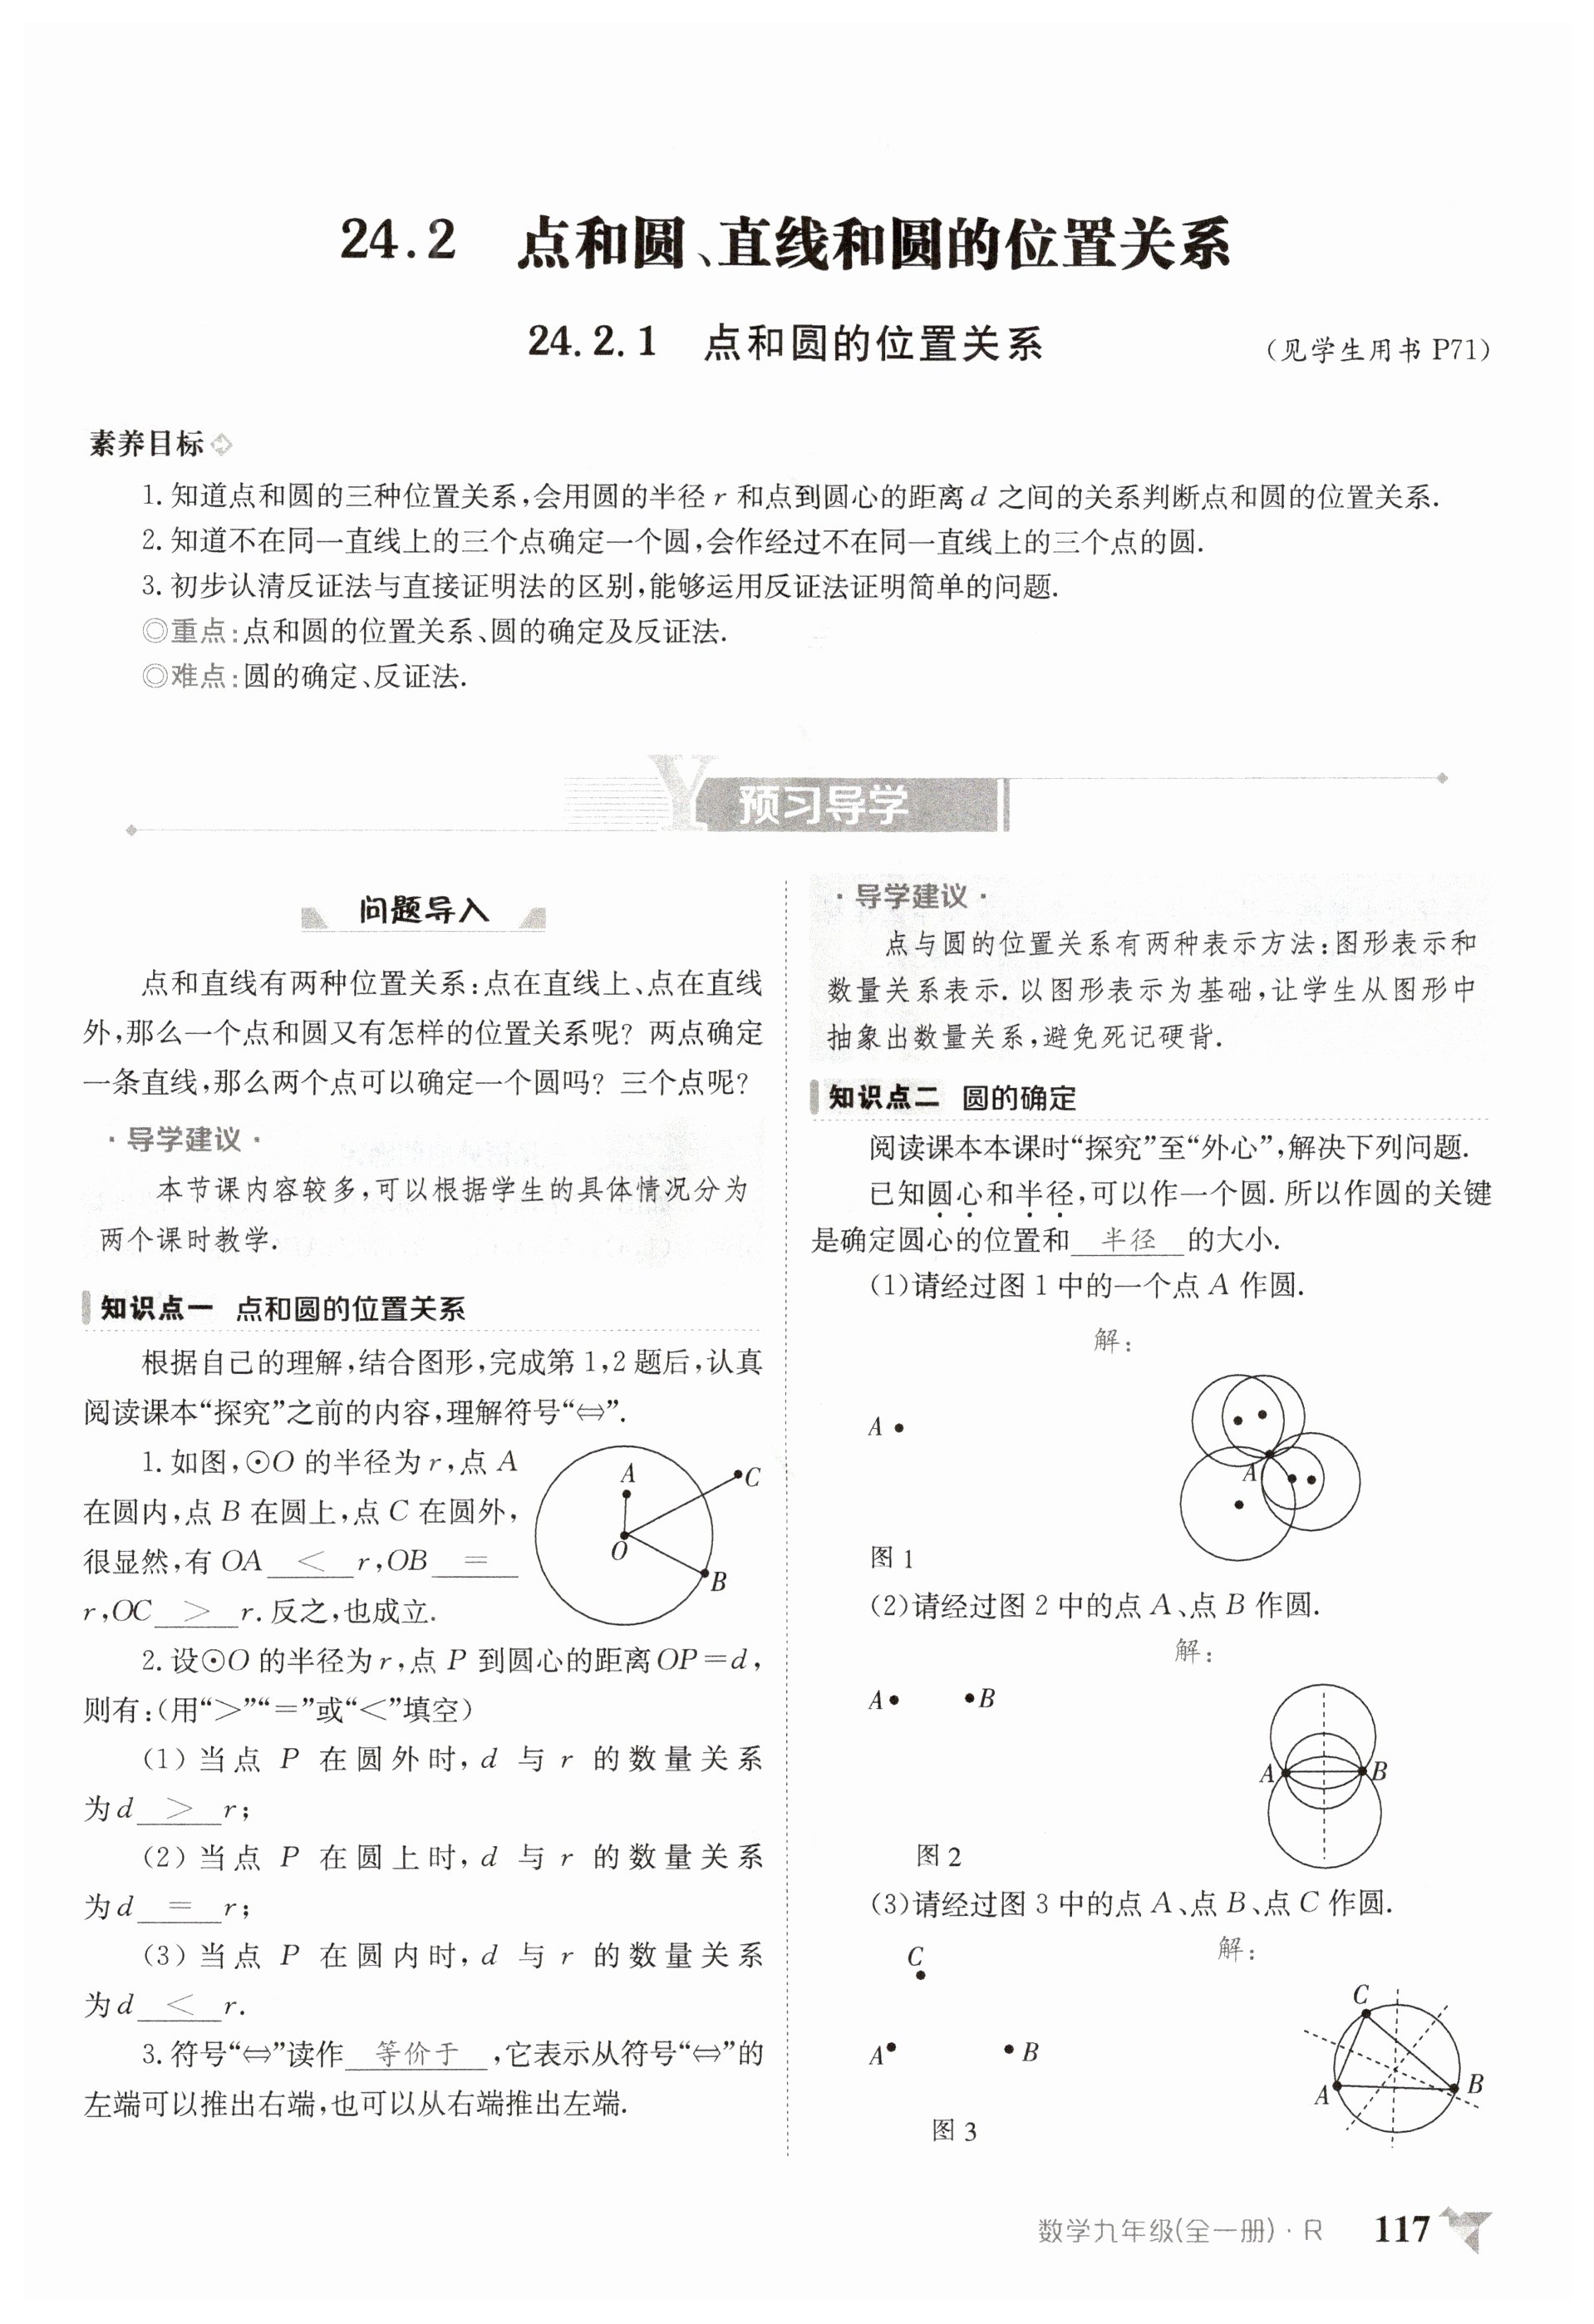 24.2 点和圆、直线和圆的位置关系
24.2.1 点和圆的位置关系 (见学生用书 P71)
素养目标
1. 知道点和圆的三种位置关系,会用圆的半径 r 和点到圆心的距离 d 之间的关系判断点和圆的位置关系.
2. 知道不在同一直线上的三个点确定一个圆,会作经过不在同一直线上的三个点的圆.
3. 初步认清反证法与直接证明法的区别,能够运用反证法证明简单的问题.
◎重点:点和圆的位置关系、圆的确定及反证法.
◎难点:圆的确定、反证法.
Y 预习导学
问题导入
点和直线有两种位置关系:点在直线上、点在直线
外,那么一个点和圆又有怎样的位置关系呢? 两点确定
一条直线,那么两个点可以确定一个圆吗? 三个点呢?
·导学建议·
本节课内容较多,可以根据学生的具体情况分为
两个课时教学.
知识点一 点和圆的位置关系
根据自己的理解,结合图形,完成第 1,2 题后,认真
阅读课本“探究”之前的内容,理解符号“⇔”.
1. 如图,⊙O 的半径为 r,点 A
在圆内,点 B 在圆上,点 C 在圆外,
很显然,有 OA < r,OB =
r,OC > r. 反之,也成立.
A
C
O
B
2. 设⊙O 的半径为 r,点 P 到圆心的距离 OP=d,
则有:(用“>”“=”或“<”填空)
(1) 当点 P 在圆外时, d 与 r 的数量关系
为 d > r;
(2) 当点 P 在圆上时, d 与 r 的数量关系
为 d = r;
(3) 当点 P 在圆内时, d 与 r 的数量关系
为 d < r.
3. 符号“⇔”读作 等价于 ,它表示从符号“⇔”的
左端可以推出右端,也可以从右端推出左端.
·导学建议·
点与圆的位置关系有两种表示方法:图形表示和
数量关系表示. 以图形表示为基础,让学生从图形中
抽象出数量关系,避免死记硬背.
知识点二 圆的确定
阅读课本本课时“探究”至“外心”,解决下列问题.
已知圆心和半径,可以作一个圆. 所以作圆的关键
是确定圆心的位置和 半径 的大小.
(1)请经过图 1 中的一个点 A 作圆.
解:
A
A
图 1
(2)请经过图 2 中的点 A、点 B 作圆.
解:
A B
A B
图 2
(3)请经过图 3 中的点 A、点 B、点 C 作圆.
解:
C
C
A B
A B
图 3
数学九年级(全一册) · R 117